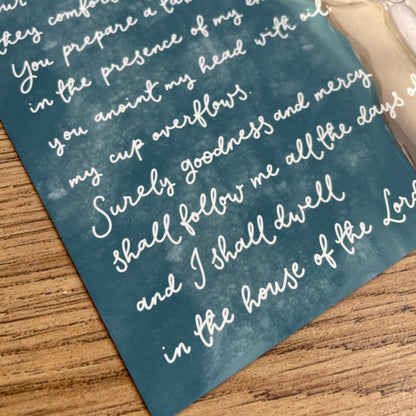 they comfor
You prepare a ta
in the presence of my en
you anoint my head with oil,
my cup overflows.
Surely goodness and mercy
shall follow me all the days o
and I shall dwell
in the house of the Lor